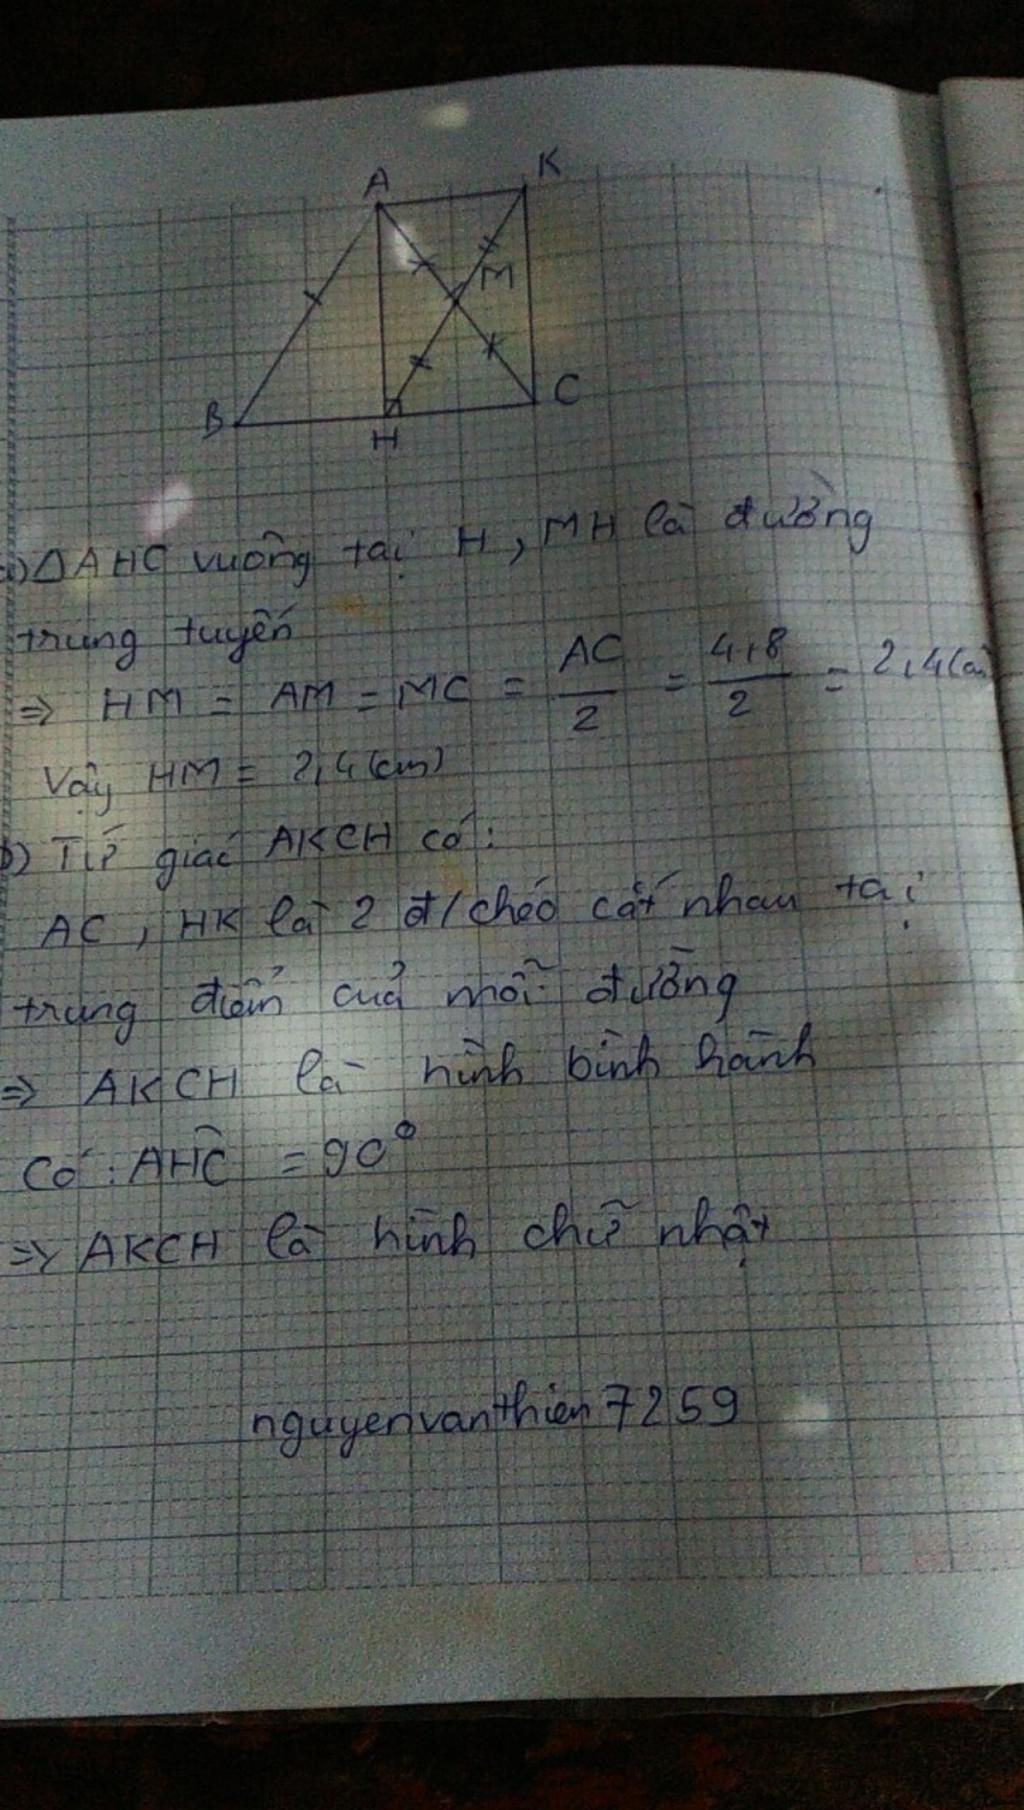 A K
M
B H C
a) ΔAHC vuông tại H, MH là đường
trung tuyến
=> HM = AM = MC = AC/2 = 4,8/2 = 2,4(cm)
Vậy HM = 2,4(cm)
b) Tứ giác AKCH có:
AC, HK là 2 đ/chéo cắt nhau tại
trung điểm của mỗi đường
=> AKCH là hình bình hành
Có: AHC = 90°
=> AKCH là hình chữ nhật
nguyenvanthien7259